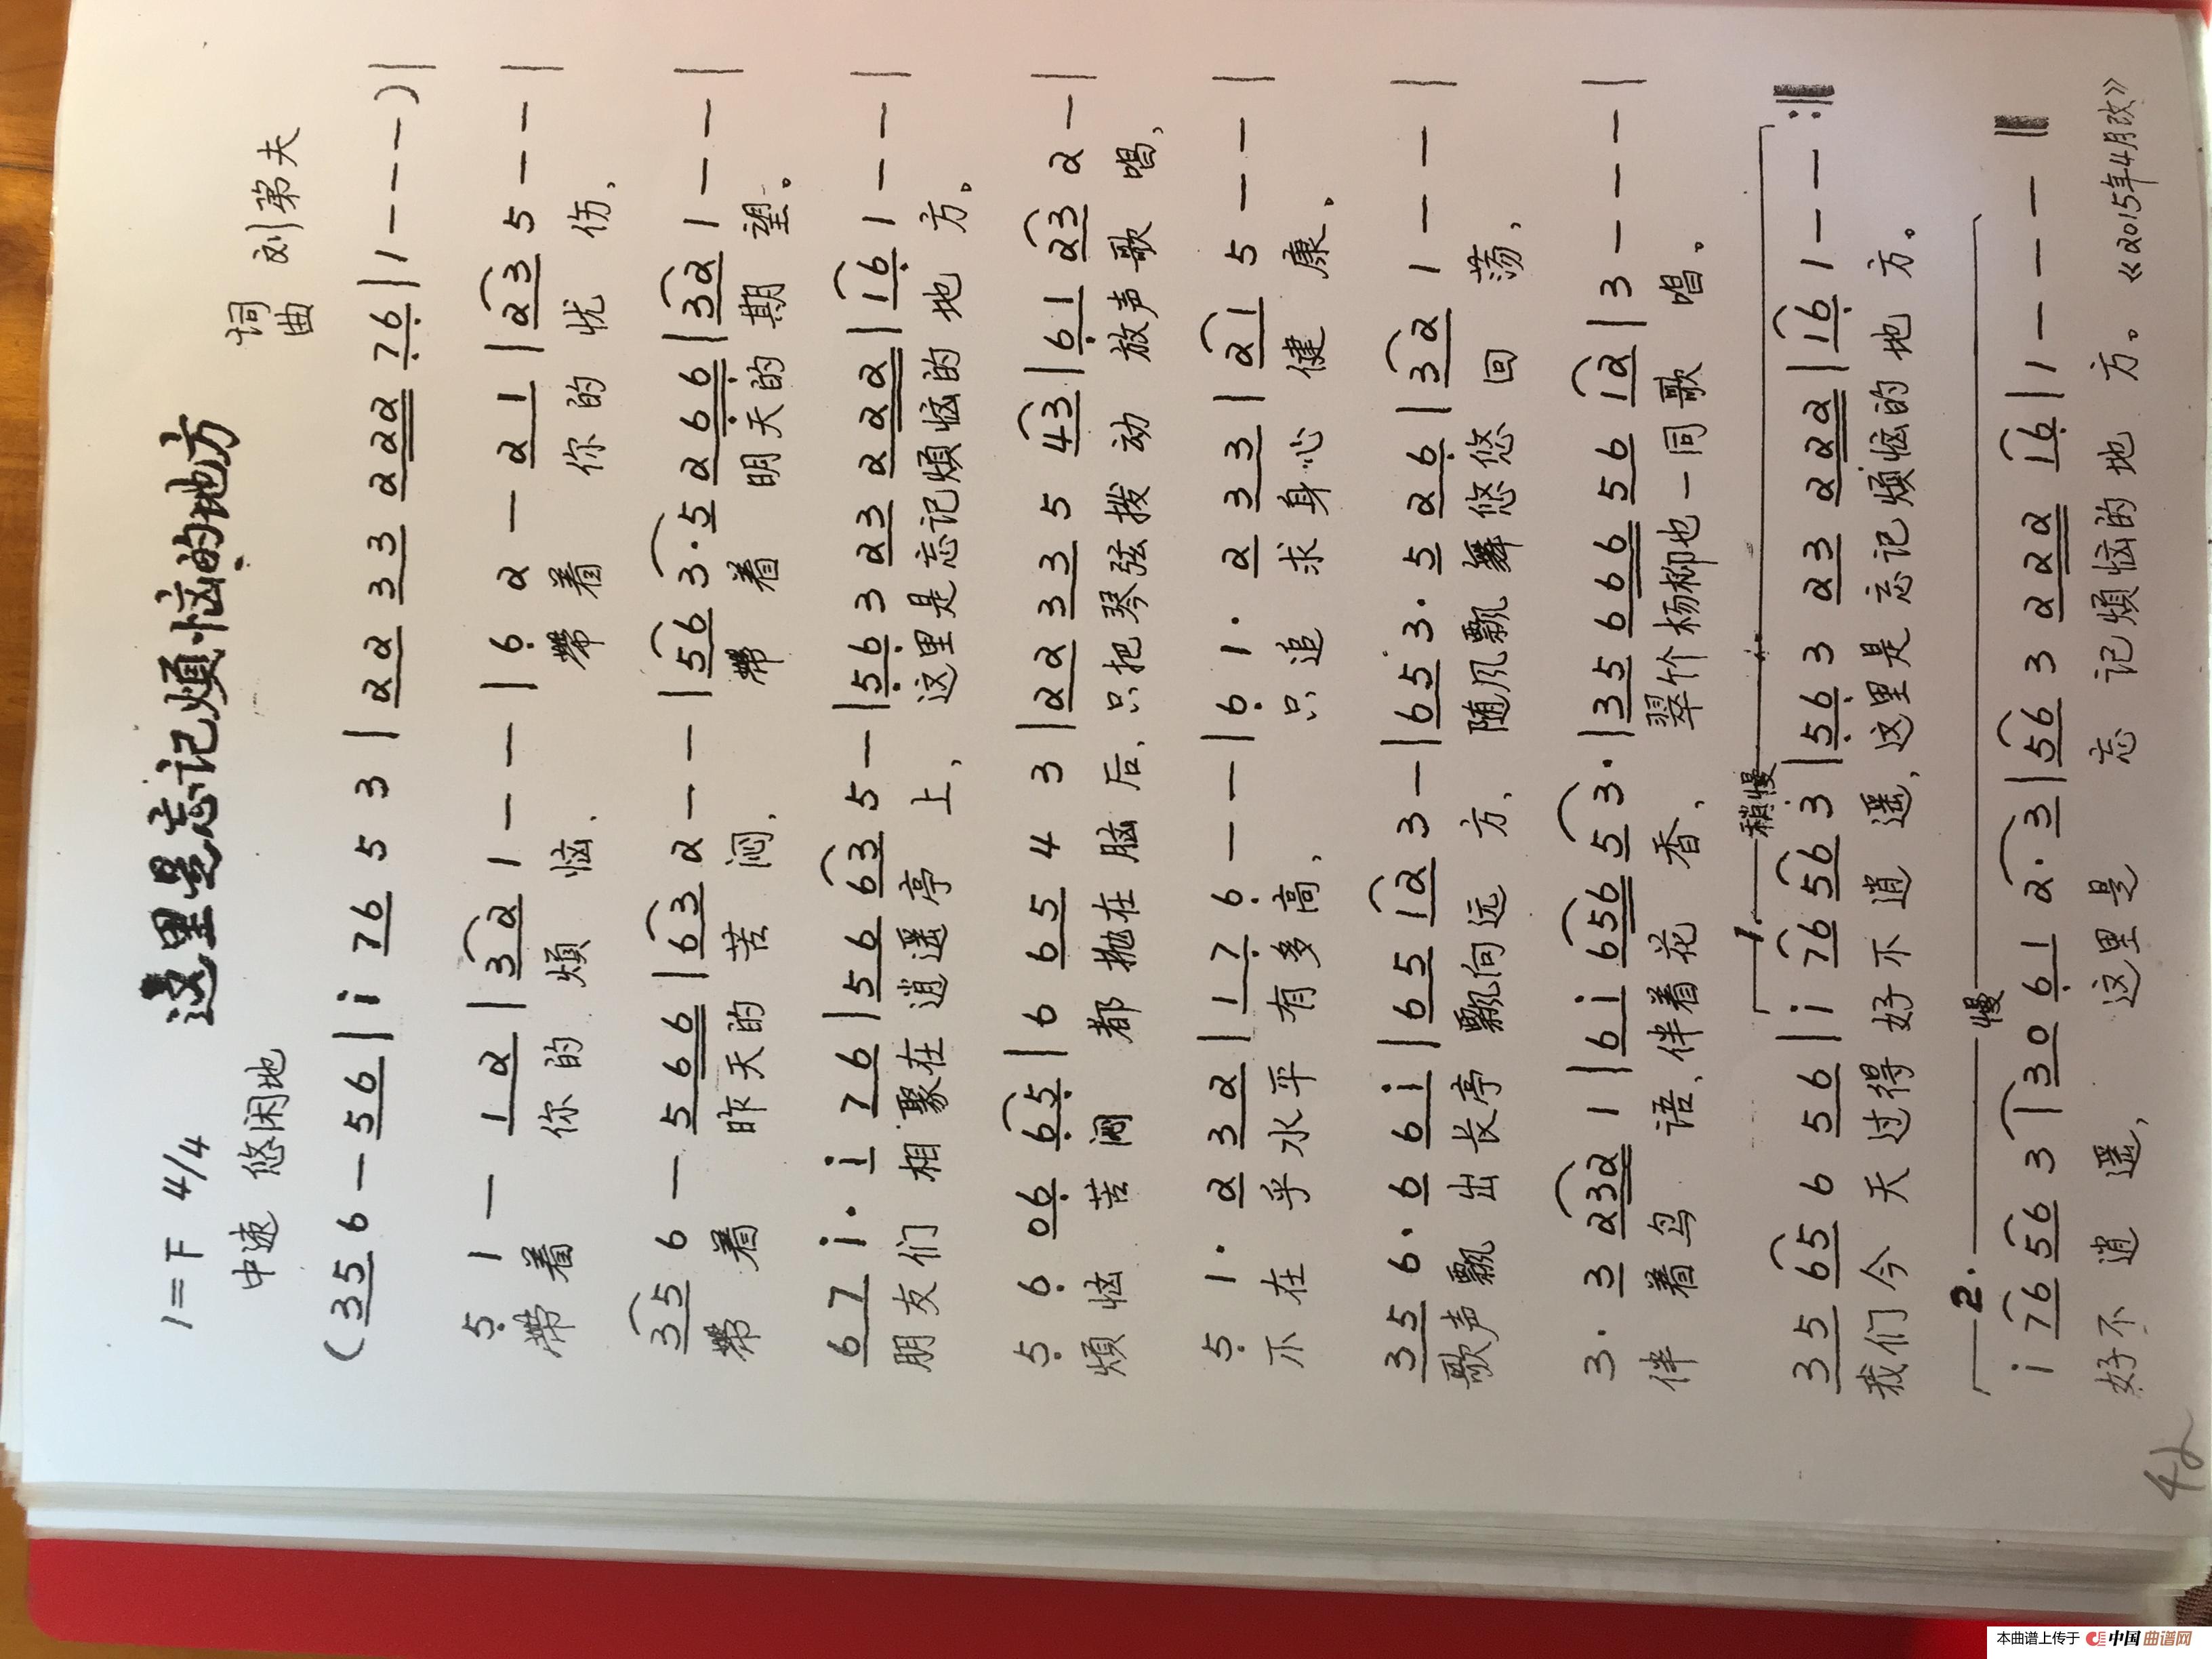 这里是忘记烦恼的地方
1=F 4/4
词
曲 刘第夫
中速 悠闲地
(3 5 6 — 5 6 | i 7 6 5 3 | 2 2 3 3 2 2 2 7 6 | 1 — — —) |
5 1 — 1 2 | 3 2 1 — — | 6 2 — 2 1 | 2 3 5 — — |
带着 你的 烦恼、 带着 你的忧伤,
3 5 6 — 5 6 6 | 6 3 2 — — | 5 6 3 · 5 2 6 6 | 3 2 1 — — |
带着 昨天的苦闷, 带着 明天的期望。
6 7 i · i 7 6 | 5 6 6 3 5 — | 5 6 3 2 3 2 2 2 | 1 6 1 — — |
朋友们 相聚在逍遥亭上, 这里是忘记烦恼的地方。
5 6 0 6 6 5 | 6 6 5 4 3 | 2 2 3 3 5 4 3 | 6 1 2 3 2 — |
烦恼 苦闷 都抛在脑后, 只把琴弦拨动 放声歌唱,
5 1 · 2 3 2 | 1 7 6 — — | 6 1 · 2 3 3 | 2 1 5 — — |
不在乎水平有多高, 只追求身心健康。
3 5 6 · 6 6 i | 6 5 1 2 3 — | 6 5 3 · 5 2 6 | 3 2 1 — — |
歌声飘出长亭飘向远方, 随风飘舞悠悠回荡,
3 · 3 2 3 2 1 | 6 i 6 5 6 5 3 · | 3 5 6 6 6 5 6 1 2 | 3 — — — |
伴着鸟语、伴着花香, 翠竹杨柳也一同歌唱。
1. 稍慢
3 5 6 5 6 5 6 | i 7 6 5 6 3 | 5 6 3 2 3 2 2 2 | 1 6 1 — — :‖
我们今天过得好不逍遥, 这里是忘记烦恼的地方。
2. 慢
i 7 6 5 6 3 | 3 0 6 1 2 · 3 | 5 6 3 2 2 2 1 6 | 1 — — — ‖
好不逍遥, 这里是忘记烦恼的地方。《2015年4月改》
42
本曲谱上传于 中国曲谱网